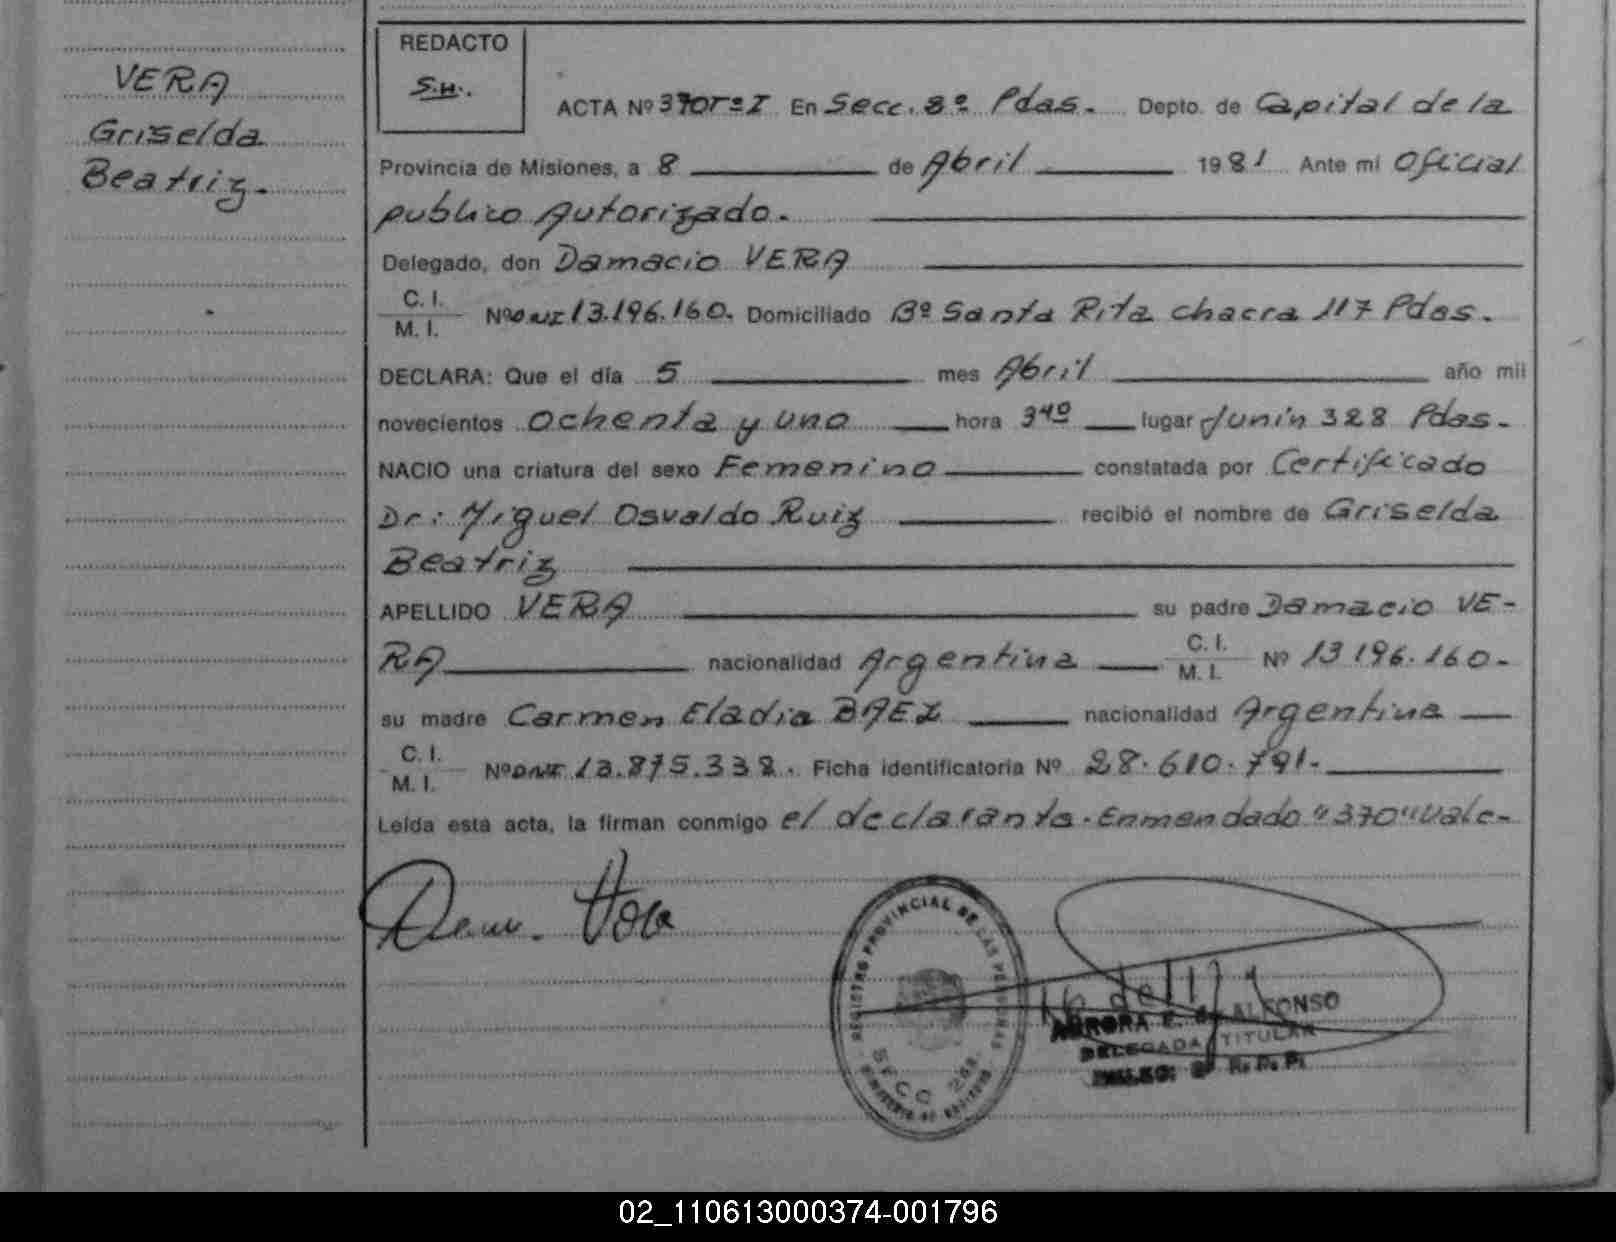 VERA
Griselda
Beatriz.
REDACTO
S.H.
ACTA Nº 370 Tº I En Secc. 8º Pdas. Depto. de Capital de la
Provincia de Misiones, a 8 de Abril 1981 Ante mi Oficial
publico Autorizado.
Delegado, don Damacio VERA
C. I.
M. I.
Nº DNI 13.196.160. Domiciliado Bº Santa Rita chacra 117 Pdas.
DECLARA: Que el día 5 mes Abril año mil
novecientos Ochenta y uno hora 3 40 lugar Junin 328 Pdas.
NACIO una criatura del sexo Femenino constatada por Certificado
Dr: Miguel Osvaldo Ruiz recibió el nombre de Griselda
Beatriz
APELLIDO VERA su padre Damacio VE-
RA nacionalidad Argentina C. I. M. I. Nº 13 196.160-
su madre Carmen Eladia BAEZ nacionalidad Argentina
C. I.
M. I.
Nº DNI 13.875.338. Ficha identificatoria Nº 28.610.791.
Leída esta acta, la firman conmigo el declarante. Enmendado "370" Vale-
REGISTRO PROVINCIAL DE LAS PERSONAS
SECC
AURORA E. de ALFONSO
DELEGADA TITULAR
R. P. P.
02_110613000374-001796